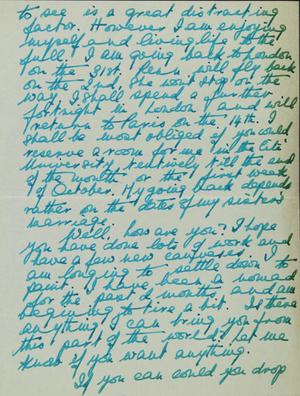 to see is a great distracting
factor. However I am enjoying
myself and living life to the
full. I am going back to London
on the 31st. Renu will fly back
on the 2nd. She wont stop on the
way. I shall spend a further
fortnight in London and will
return to Paris on the 14th. I
shall be most obliged if you would
reserve a room for me in the Cité
University tentively till the end
of the month or the first week
of October. My going back depends
rather on the dates of my sisters
marriage.
Well, how are you? I hope
you have done lots of work and
have a few new canvases. I
am longing to settle down to
paint. I have been a nomad
for the past 2 months and am
beginning to tire a bit. Is there
anything I can bring you from
this part of the world? Let me
know if you want anything.
If you can could you drop